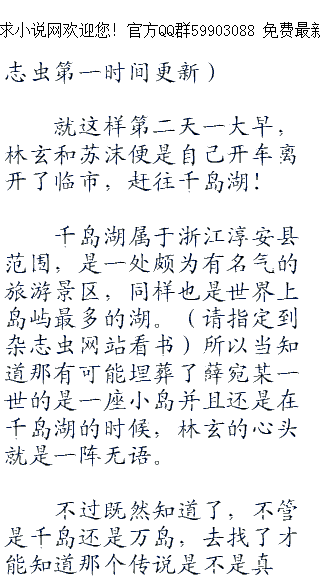 求小说网欢迎您！官方QQ群59903088 免费最新
志虫第一时间更新）
就这样第二天一大早，
林玄和苏沫便是自己开车离
开了临市，赶往千岛湖！
千岛湖属于浙江淳安县
范围，是一处颇为有名气的
旅游景区，同样也是世界上
岛屿最多的湖。（请指定到
杂志虫网站看书）所以当知
道那有可能埋葬了薛宛某一
世的是一座小岛并且还是在
千岛湖的时候，林玄的心头
就是一阵无语。
不过既然知道了，不管
是千岛还是万岛，去找了才
能知道那个传说是不是真